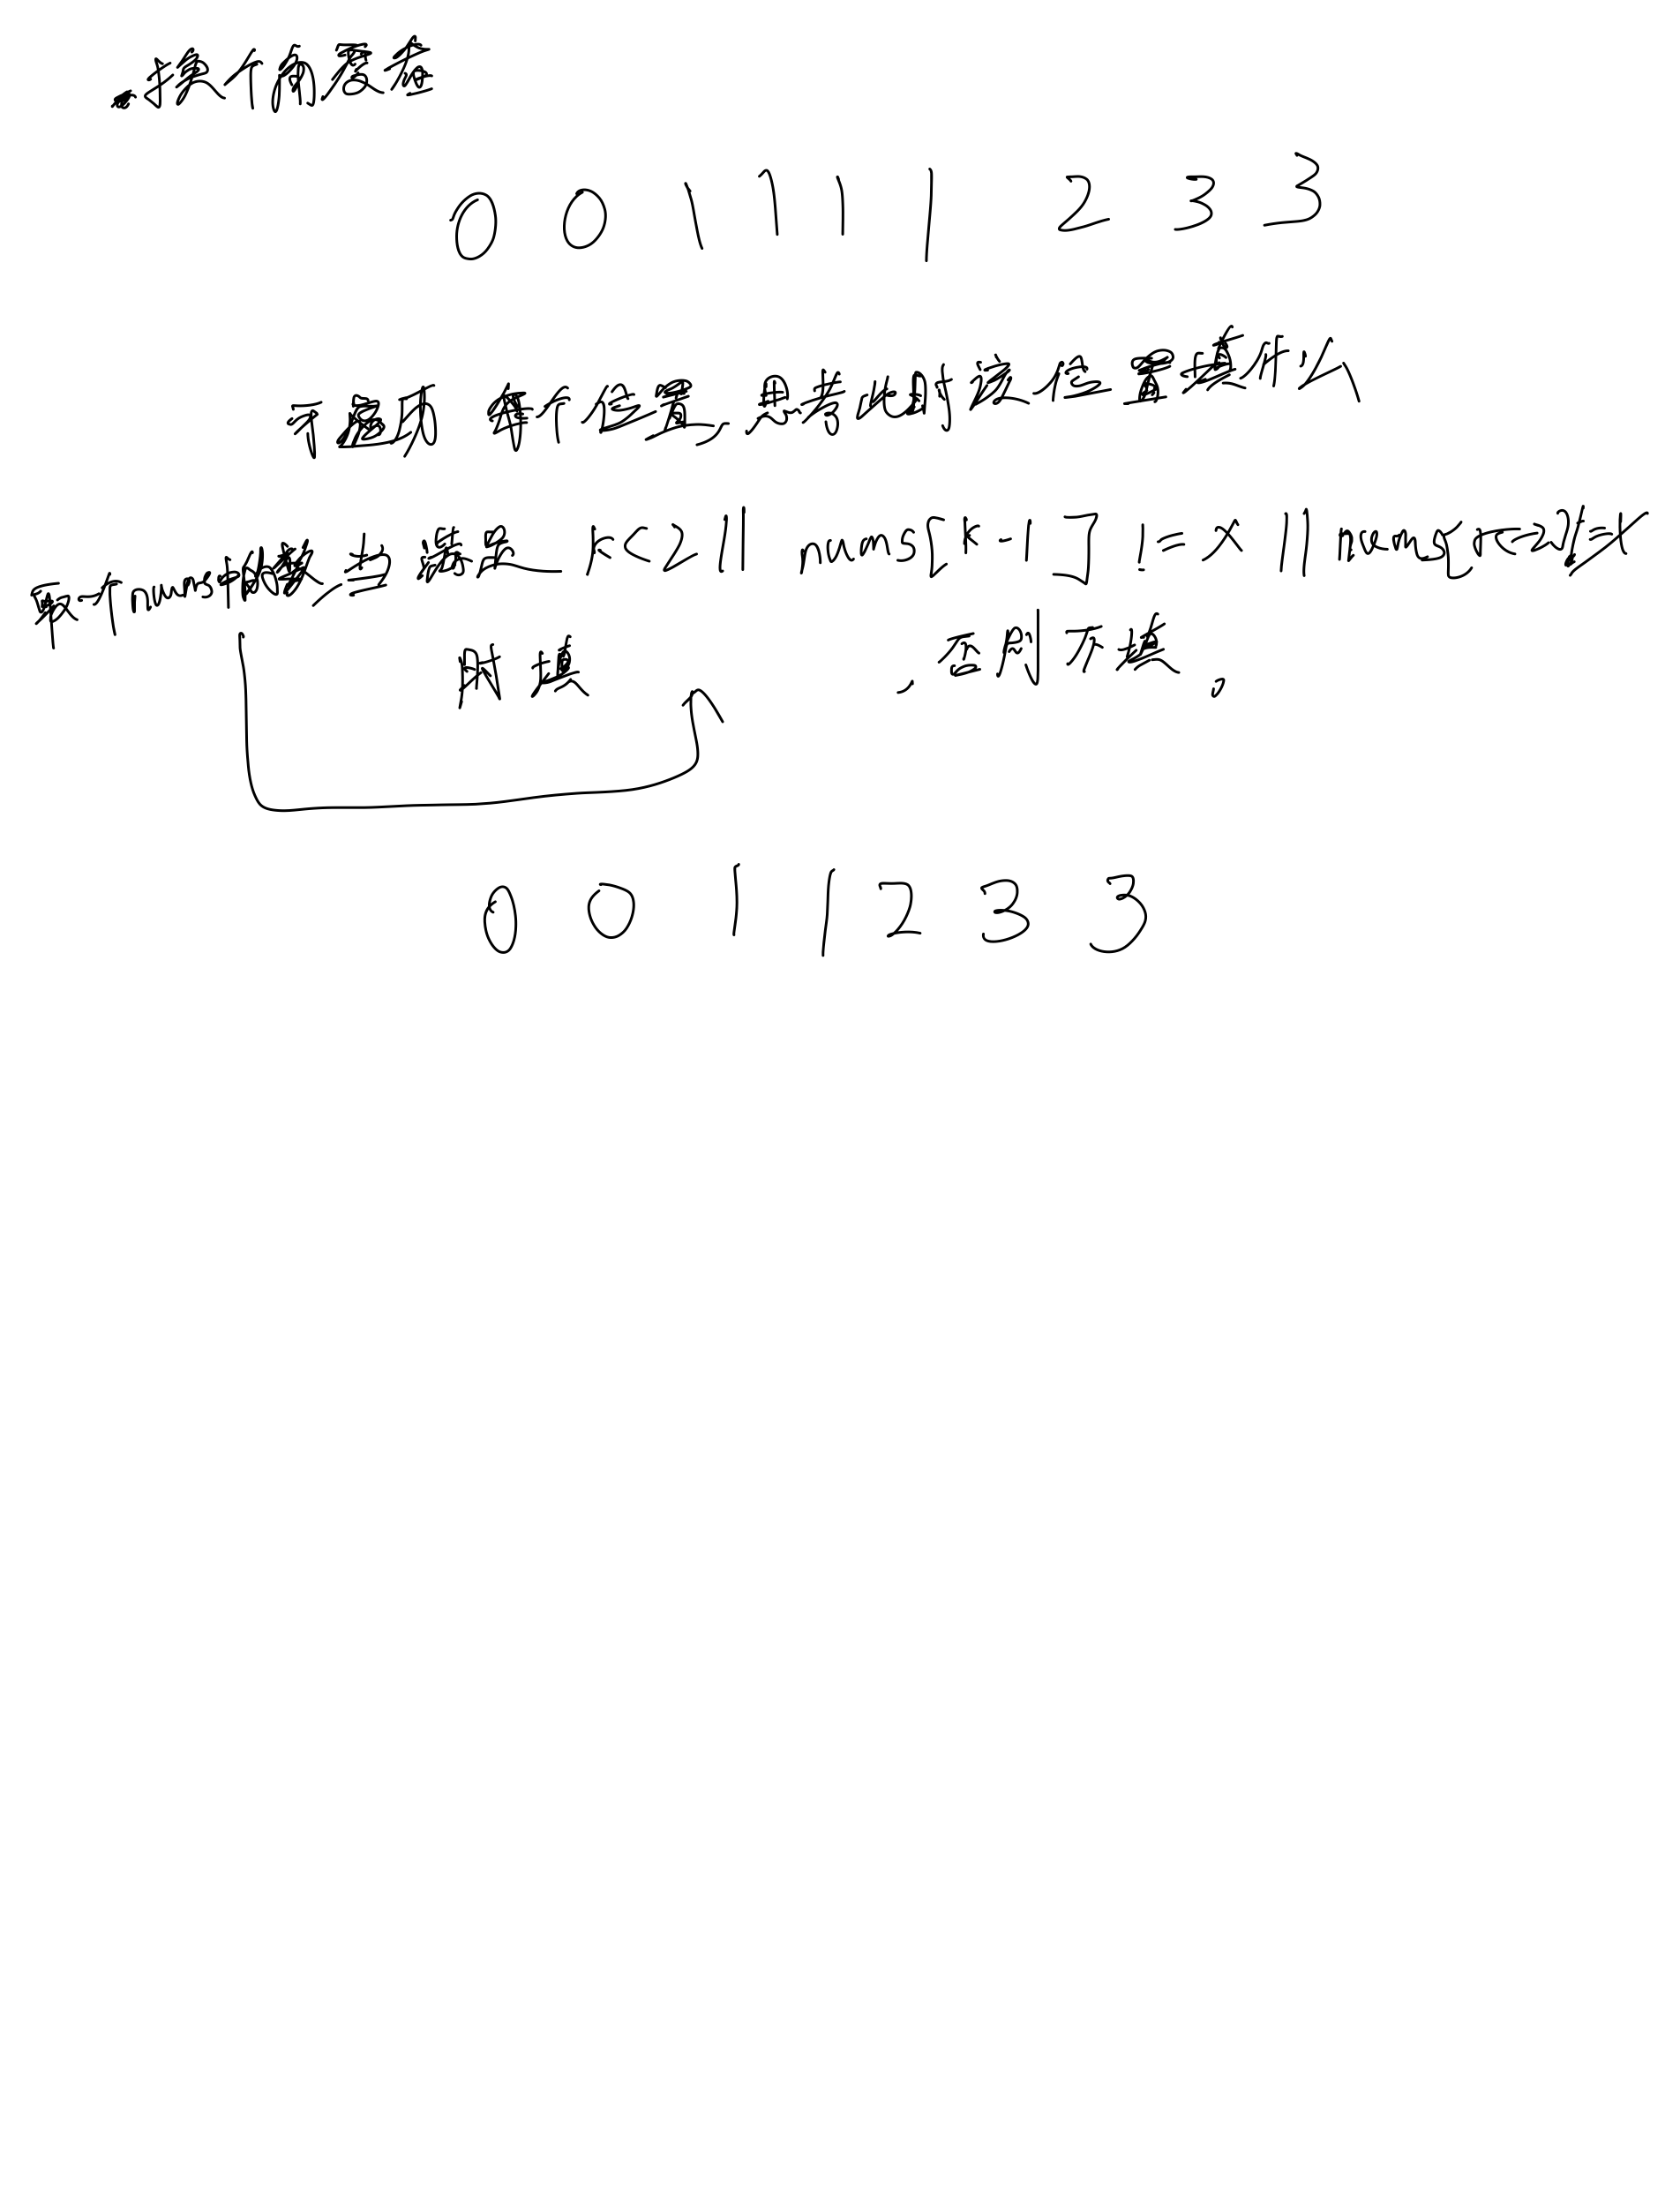 换个角度看
0 0 1 1 1 1 2 3 3
不遍历 每个位置,思考此时该位置填什么
取一个nums中的数 当满足 k<2|| nums[k-1]!=x || nums[k-2]!=x
时填 ,否则不填。
0 0 1 1 2 3 3